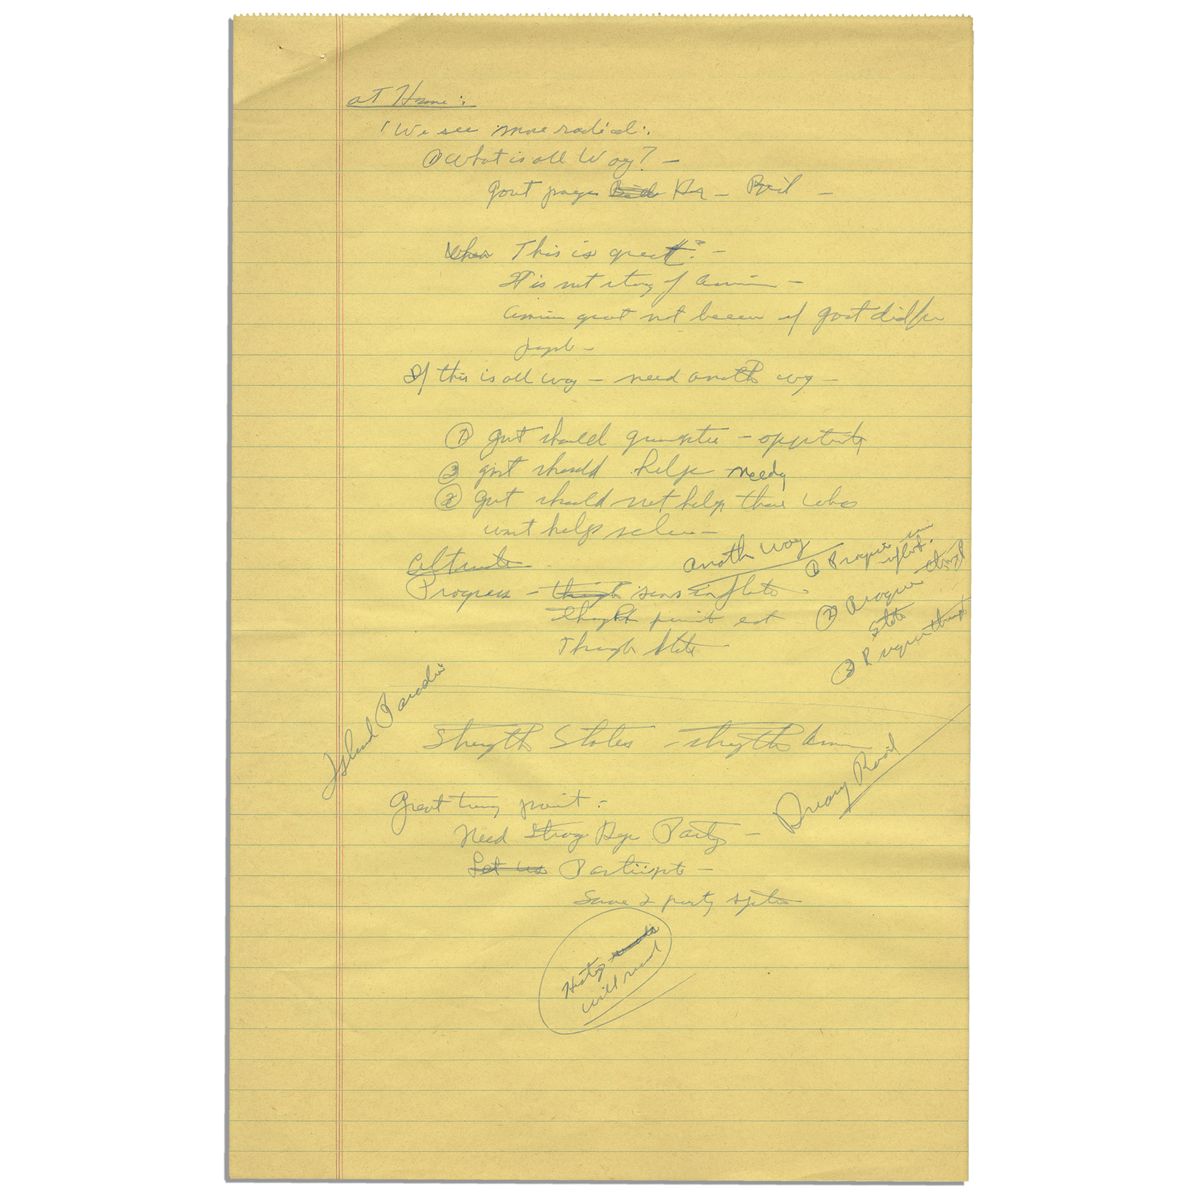 at Home:
We see more radical:
① What is all way? -
Govt pays
When This is great? -
It is not story of
great not because of govt did for
people -
If this is all way - need anoth way -
① govt should guarantee - opportunity
② govt should help needy
③ govt should not help those who
wont help selves -
Alternate
Progress - through sens inflate
through
Through State
anoth way
① Progress
inflat.
② Progress through
State
③ Progress through
Island Paradise
Strength States - strength
Dreary Road
Great turning point:
Need Strong Rep Party -
Let us Participate -
Save 2 party system
History
will record